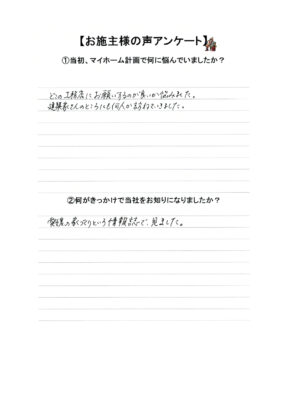 【お施主様の声アンケート】
①当初、マイホーム計画で何に悩んでいましたか？
どこの工務店にお願いするのが良いか悩みました。
建築家さんのところにも何人か訪ねていきました。
②何がきっかけで当社をお知りになりましたか？
の家づくりという情報誌で、見ました。